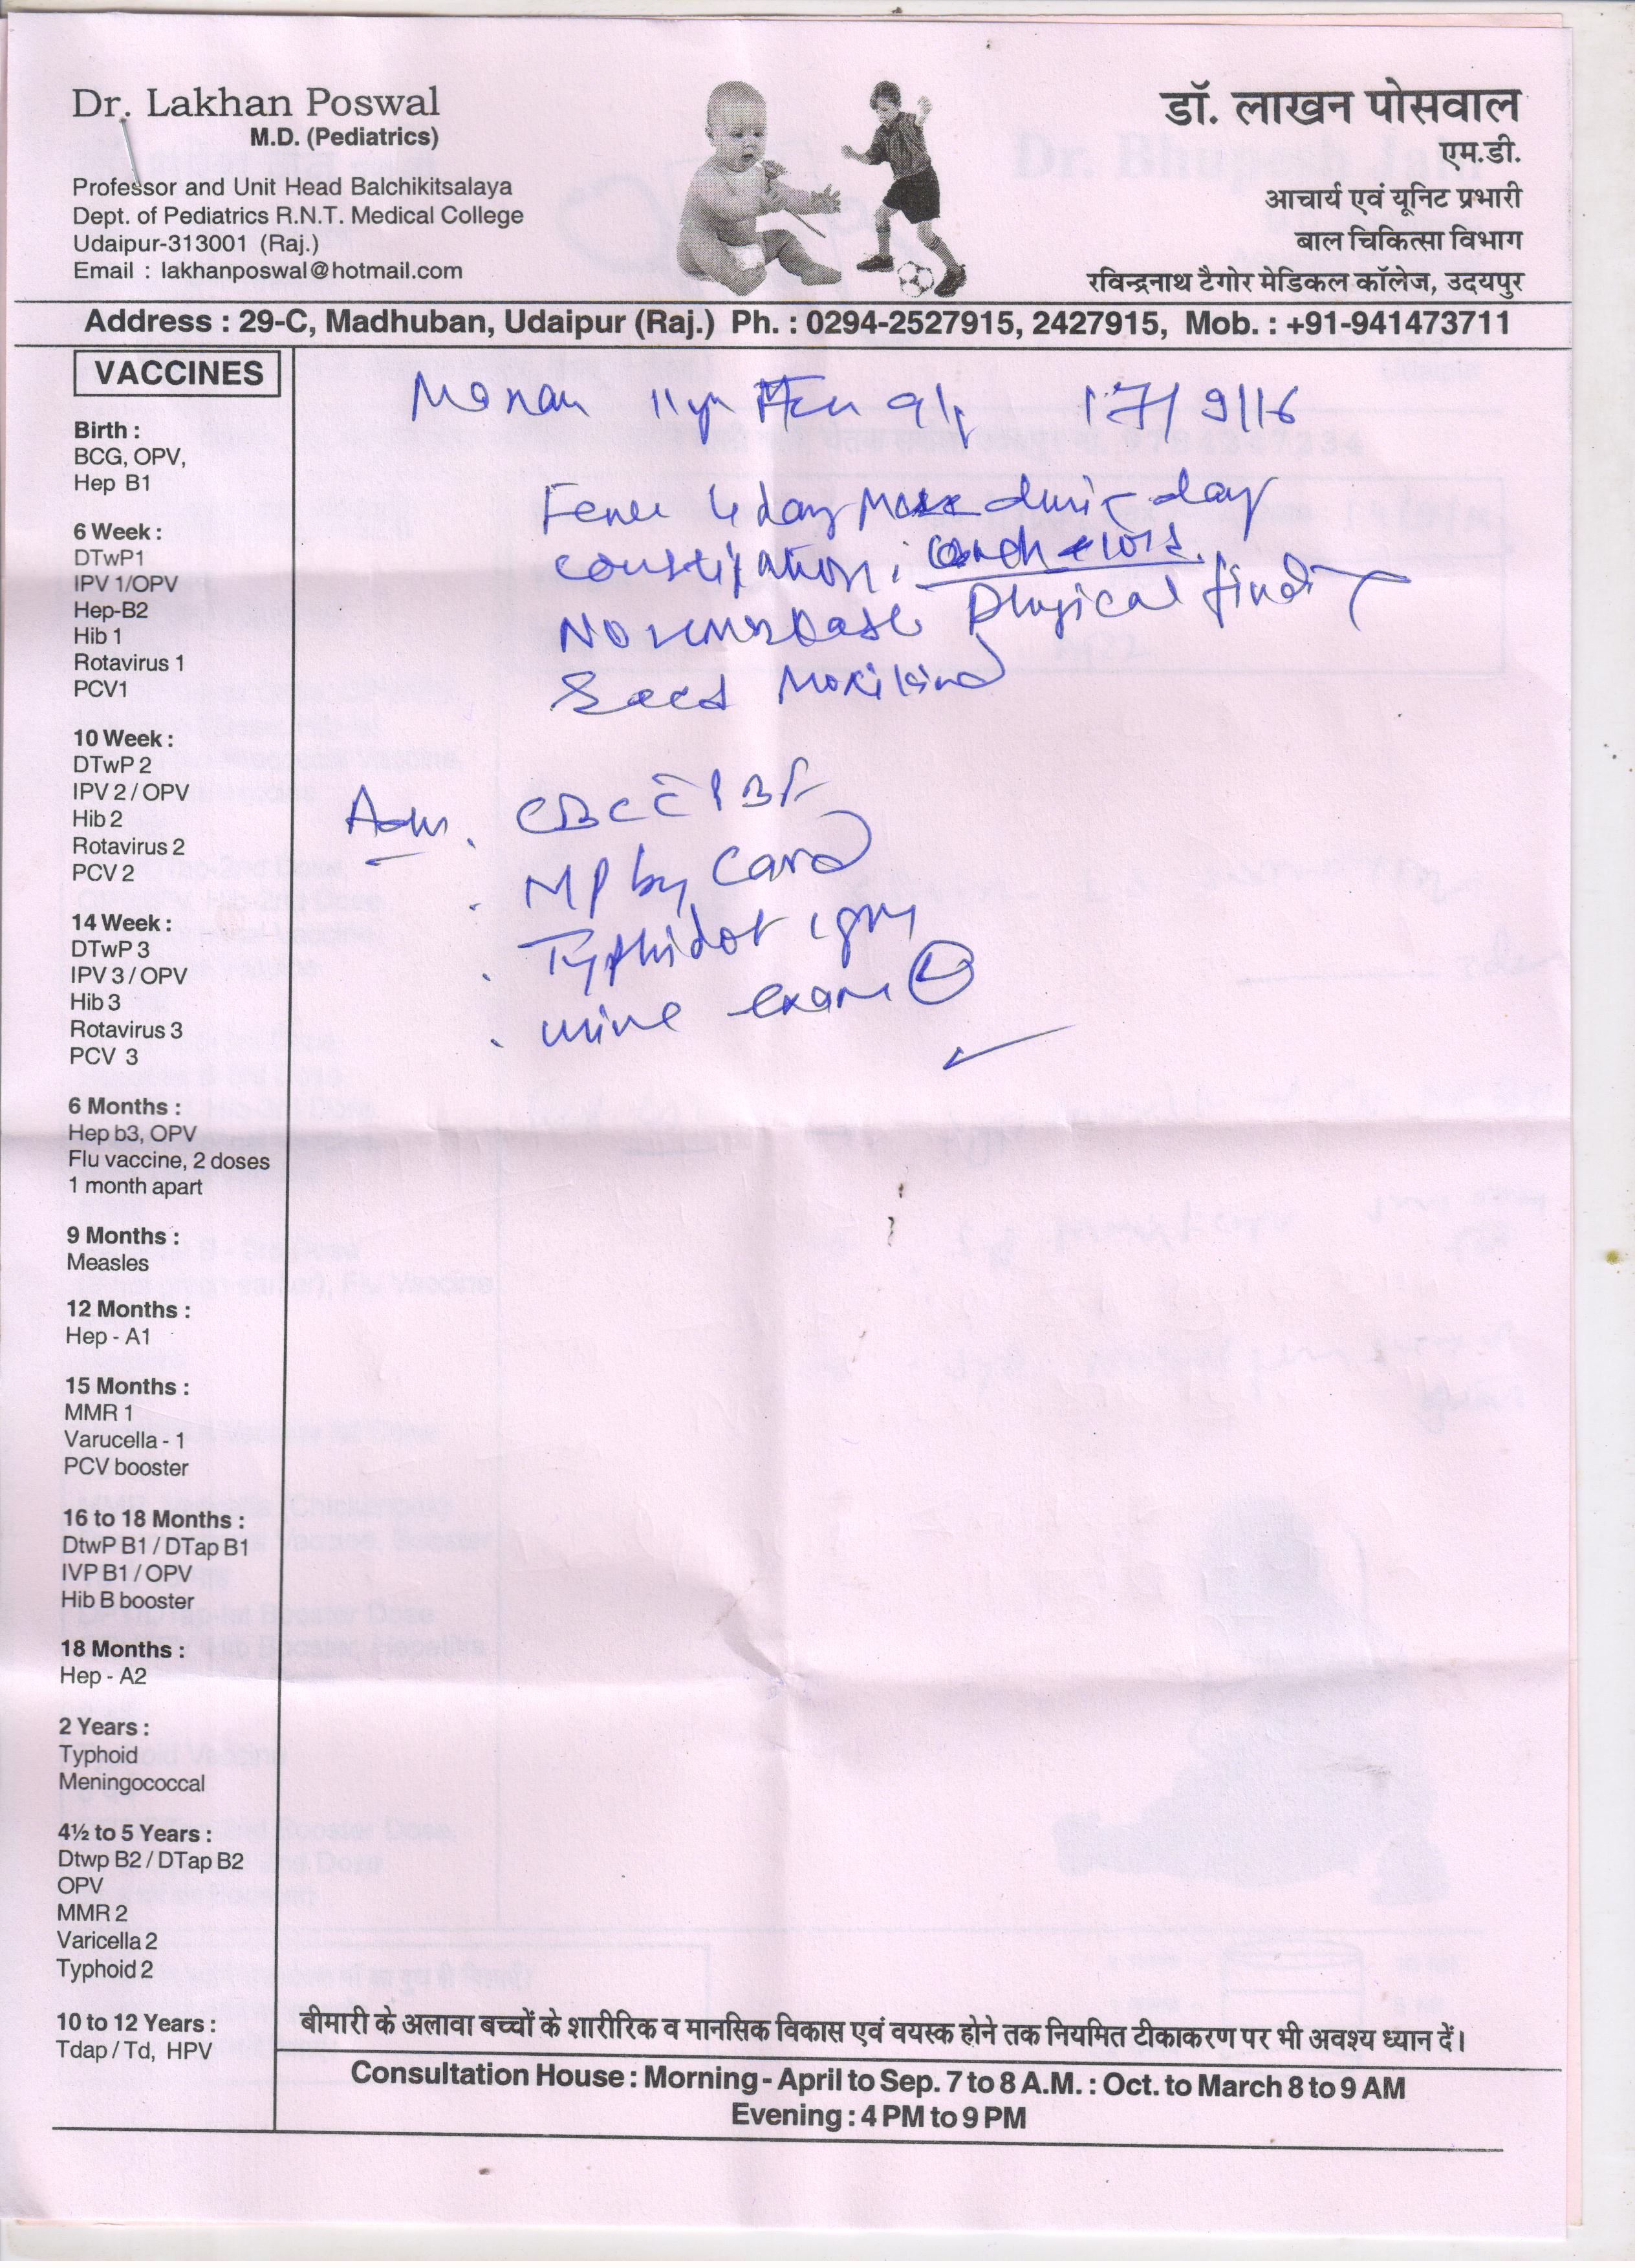 Dr. Lakhan Poswal
M.D. (Pediatrics)
Professor and Unit Head Balchikitsalaya
Dept. of Pediatrics R.N.T. Medical College
Udaipur-313001 (Raj.)
Email : lakhanposwal@hotmail.com
डॉ. लाखन पोसवाल
एम.डी.
आचार्य एवं यूनिट प्रभारी
बाल चिकित्सा विभाग
रविन्द्रनाथ टैगोर मेडिकल कॉलेज, उदयपुर
Address : 29-C, Madhuban, Udaipur (Raj.) Ph. : 0294-2527915, 2427915, Mob. : +91-941473711
VACCINES
Birth :
BCG, OPV,
Hep B1
6 Week :
DTwP1
IPV 1/OPV
Hep-B2
Hib 1
Rotavirus 1
PCV1
10 Week :
DTwP 2
IPV 2 / OPV
Hib 2
Rotavirus 2
PCV 2
14 Week :
DTwP 3
IPV 3 / OPV
Hib 3
Rotavirus 3
PCV 3
6 Months :
Hep b3, OPV
Flu vaccine, 2 doses
1 month apart
9 Months :
Measles
12 Months :
Hep - A1
15 Months :
MMR 1
Varucella - 1
PCV booster
16 to 18 Months :
DtwP B1 / DTap B1
IVP B1 / OPV
Hib B booster
18 Months :
Hep - A2
2 Years :
Typhoid
Meningococcal
4½ to 5 Years :
Dtwp B2 / DTap B2
OPV
MMR 2
Varicella 2
Typhoid 2
10 to 12 Years :
Tdap / Td, HPV
Manan 11yr 17/9/16
Fever 4 day during day
constipation
No physical finding
Moxikind
Adv. CBC
MP by Card
Typhidot IgM
urine exam
बीमारी के अलावा बच्चों के शारीरिक व मानसिक विकास एवं वयस्क होने तक नियमित टीकाकरण पर भी अवश्य ध्यान दें।
Consultation House : Morning - April to Sep. 7 to 8 A.M. : Oct. to March 8 to 9 AM
Evening : 4 PM to 9 PM